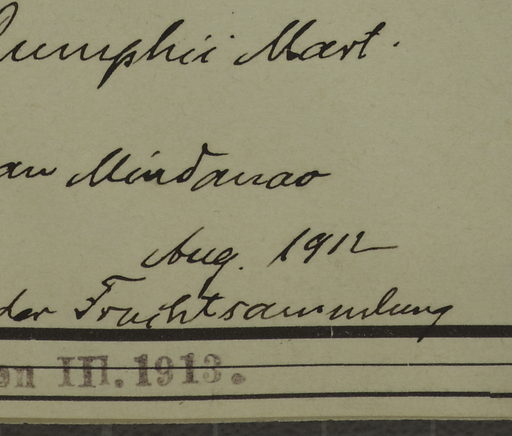 Rumphii Mart.
an Mindanao
Aug. 1912
der Fruchtsammlung
en III. 1913.